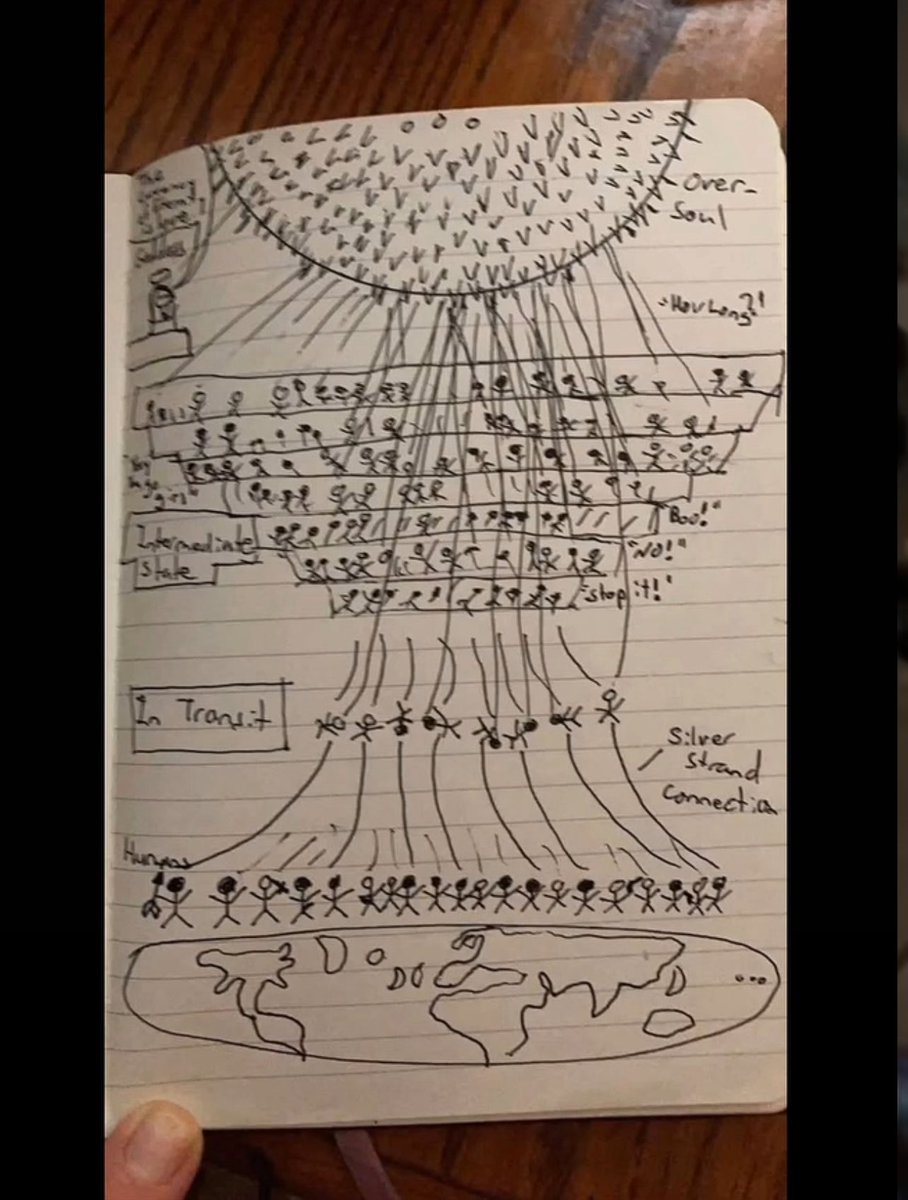 The
Over-
Soul
"How Long?!"
"Boo!"
Intermediate
State
"NO!"
"Stop it!"
In Transit
Silver
Strand
Connection
Humans